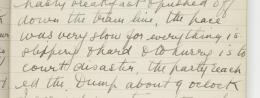 hasty breakfast & pushed off
down the tram line, the pace
was very slow for everything is
slippery & hard & to hurry is to
court disaster, the party reach
ed the Dump about 9 oclock